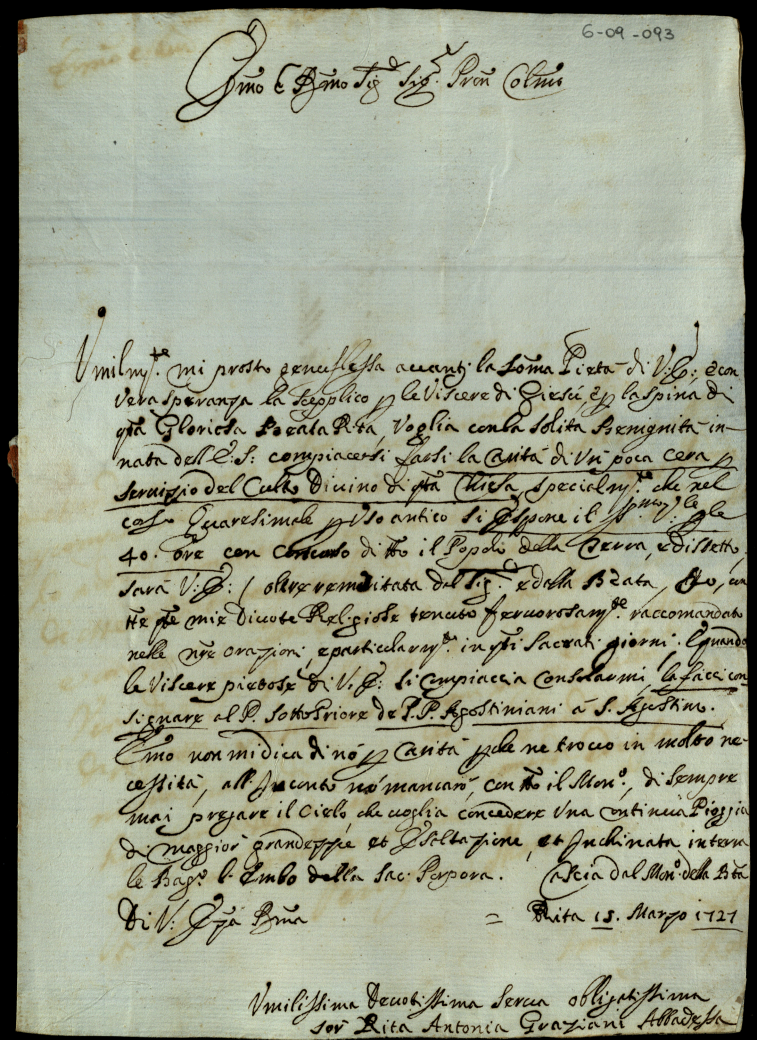 6-09-093
Emo e Rmo Sig.r Sig.r Pron Colmo
Umilm.te mi prosto genuflessa avanti la Soma Pietà di V: E:, e con
vera speranza la supplico p le Viscere di Giesù, e p la Spina di
qta Gloriosa Beata Rita, Voglia con la solita Benignità in-
nata dell'E: S: compiacersi farsi la Carità di Un poca Cera p
servizio del Culto Divino di qta Chiesa, specialm.te che nel
corso Quaresimale p uso antico si Espone il p le
40. Ore con Concorso di tto il Popolo della Terra, e disstto,
sarà V: E: ( oltre remeritata dal Sig.re e dalla Beata, con
tte qte mie Divote Religiose tenuto fervorosam.te raccomandato
nelle nre orazioni, e particularm.te in qti Sacrati giorni. E quando
le Viscere pietose di V. E: si compiaccia Consolarmi, la facci con
signare al P. Sotto Priore de P.P. Agostiniani à S. Agostino.
Emo non mi dica di nò p Carità pche ne trovo in molta ne-
cessità, all'Inconto nò mancarò, con tto il Mon.o, di sempre
mai pregare il Cielo, che voglia concedere Una continua Pioggia
di maggior grandezze et Esaltazione, et Inchinata in terra
le Bag.o l'Embo della Sac: Porpora. Cascia dal Mon.o della Bta
Di V: Eza Rma = Rita 15. Marzo 1727
Umilissima Devotissima Serva obligatissima
Sor Rita Antonia Graziani Abbadessa